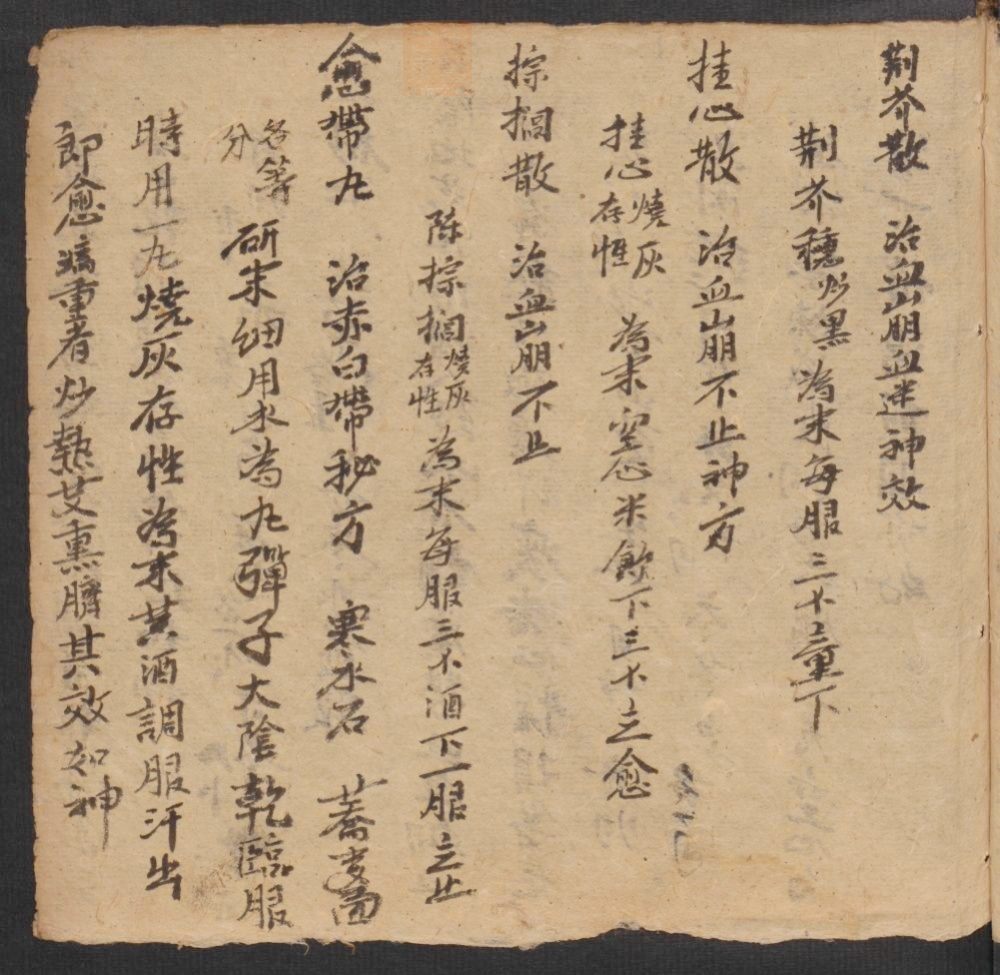 荆芥散 治血山崩血迷神效
荆芥穗炒黑為末每服三个童下
挂心散 治血山崩不止神方
挂心燒灰存性 為末空心米飲下三个立愈
棕搁散 治血山崩不止
陈棕搁燒灰存性為末每服三个酒下一服立止
愈带丸 治赤白带秘方 寒水石 蕎麦面
各等分 研末細用水為丸彈子大陰乾臨服
時用一丸燒灰存性為末黄酒調服汗出
即愈病重者炒熱艾熏臍其效如神